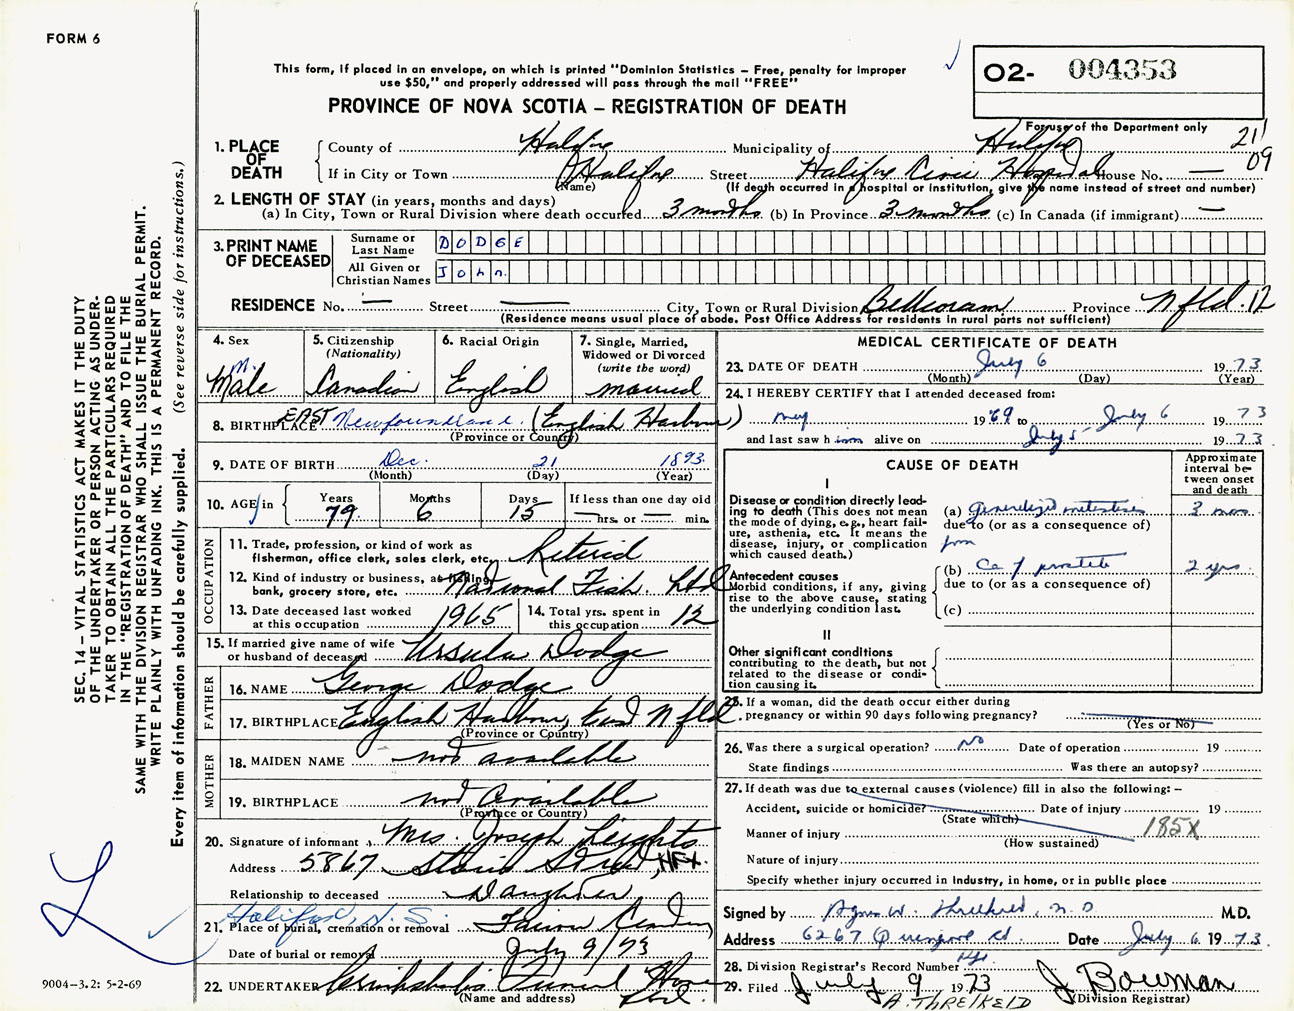 FORM 6
This form, if placed in an envelope, on which is printed "Dominion Statistics – Free, penalty for improper
use $50," and properly addressed will pass through the mail "FREE"
PROVINCE OF NOVA SCOTIA – REGISTRATION OF DEATH
O2- 004353
For use of the Department only
21
09
1. PLACE OF DEATH
County of Halifax Municipality of Halifax
If in City or Town Halifax Street Halifax Civic Hospital House No. —
(Name) (If death occurred in a hospital or institution, give the name instead of street and number)
2. LENGTH OF STAY (in years, months and days)
(a) In City, Town or Rural Division where death occurred 3 months (b) In Province 3 months (c) In Canada (if immigrant) —
3. PRINT NAME OF DECEASED
Surname or Last Name DODGE
All Given or Christian Names John
RESIDENCE No. — Street — City, Town or Rural Division Belleoram Province Nfld. 12
(Residence means usual place of abode. Post Office Address for residents in rural parts not sufficient)
4. Sex
M.
Male
5. Citizenship
(Nationality)
Canadian
6. Racial Origin
English
7. Single, Married,
Widowed or Divorced
(write the word)
married
8. BIRTHPLACE EAST Newfoundland (English Harbour)
(Province or Country)
9. DATE OF BIRTH Dec. 21 1893
(Month) (Day) (Year)
10. AGE in
Years 79
Months 6
Days 15
If less than one day old
— hrs. or — min.
OCCUPATION
11. Trade, profession, or kind of work as
fisherman, office clerk, sales clerk, etc. Retired
12. Kind of industry or business, as fishing,
bank, grocery store, etc. National Fish. Ltd
13. Date deceased last worked
at this occupation 1965
14. Total yrs. spent in
this occupation 12
15. If married give name of wife
or husband of deceased Ursula Dodge
FATHER
16. NAME George Dodge
17. BIRTHPLACE English Harbour, East Nfld.
(Province or Country)
MOTHER
18. MAIDEN NAME not available
19. BIRTHPLACE not available
(Province or Country)
20. Signature of informant Mrs. Joseph
Address 5867 Street, HFX.
Relationship to deceased Daughter
Halifax, N.S.
21. Place of burial, cremation or removal
Date of burial or removal July 9/73
22. UNDERTAKER Funeral Home
Ltd.
(Name and address)
MEDICAL CERTIFICATE OF DEATH
23. DATE OF DEATH July 6 1973
(Month) (Day) (Year)
24. I HEREBY CERTIFY that I attended deceased from:
May 1969 to July 6 1973
and last saw him alive on July 5 1973
CAUSE OF DEATH
Approximate
interval be-
tween onset
and death
I
Disease or condition directly lead-
ing to death (This does not mean
the mode of dying, e.g., heart fail-
ure, asthenia, etc. It means the
disease, injury, or complication
which caused death.)
(a) Generalized metastases 3 mos
due to (or as a consequence of)
from
Antecedent causes
Morbid conditions, if any, giving
rise to the above cause, stating
the underlying condition last.
(b) Ca of prostate 2 yrs.
due to (or as a consequence of)
(c)
II
Other significant conditions
contributing to the death, but not
related to the disease or condi-
tion causing it.
25. If a woman, did the death occur either during
pregnancy or within 90 days following pregnancy?
(Yes or No)
26. Was there a surgical operation? No Date of operation 19
State findings Was there an autopsy?
27. If death was due to external causes (violence) fill in also the following: –
Accident, suicide or homicide? Date of injury 19
(State which)
Manner of injury 185X
(How sustained)
Nature of injury
Specify whether injury occurred in industry, in home, or in public place
Signed by W. Threlkeld, M.D. M.D.
Address 6267 Date July 6 1973.
28. Division Registrar's Record Number
29. Filed July 9 1973 J Bowman
A. THRELKELD (Division Registrar)
SEC. 14 – VITAL STATISTICS ACT MAKES IT THE DUTY
OF THE UNDERTAKER OR PERSON ACTING AS UNDER-
TAKER TO OBTAIN ALL THE PARTICULARS REQUIRED
IN THE "REGISTRATION OF DEATH" AND TO FILE THE
SAME WITH THE DIVISION REGISTRAR WHO SHALL ISSUE THE BURIAL PERMIT.
WRITE PLAINLY WITH UNFADING INK. THIS IS A PERMANENT RECORD.
Every item of information should be carefully supplied. (See reverse side for instructions.)
9004–3.2: 5-2-69